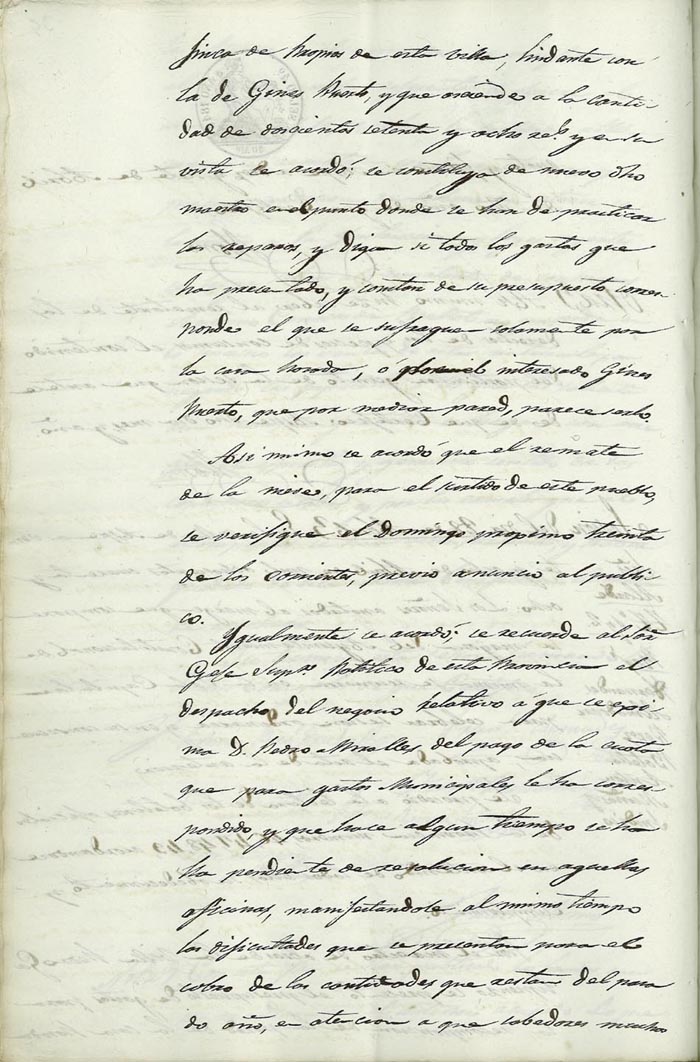 finca de Propios de esta villa, lindante con
la de Gines Puerto, y que asciende a la canti-
dad de doscientos setenta y ocho rs. y en su
vista se acordó; se constituya de nuevo dho
maestro en el punto donde se han de practicar
los reparos, y diga si todos los gastos que
ha presentado, y constan de su presupuesto corres-
ponde el que se sufraguen solamente por
la casa horada, ó por el interesado Gines
Puerto, que por mediar pared, parece serlo.
Asi mimo se acordó que el remate
de la nieve, para el surtido de este pueblo,
se verifique el Domingo proximo treinta
de los corrientes, previo anuncio al publi-
co.
Ygualmente se acordó; se recuerde al Sor
Gefe Supr. Politico de esta Provincia el
despacho del negocio relativo á que se exi-
ma D. Pedro Miralles del pago de la cuota
que para gastos Municipales le ha corres-
pondido, y que hace algun tiempo se ha
lla pendiente de resolucion en aquellas
oficinas, manifestandole al mimo tiempo
las dificultades que se presentan para el
cobro de las cantidades que restan del pasa
do año, en atencion a que sabedores muchos